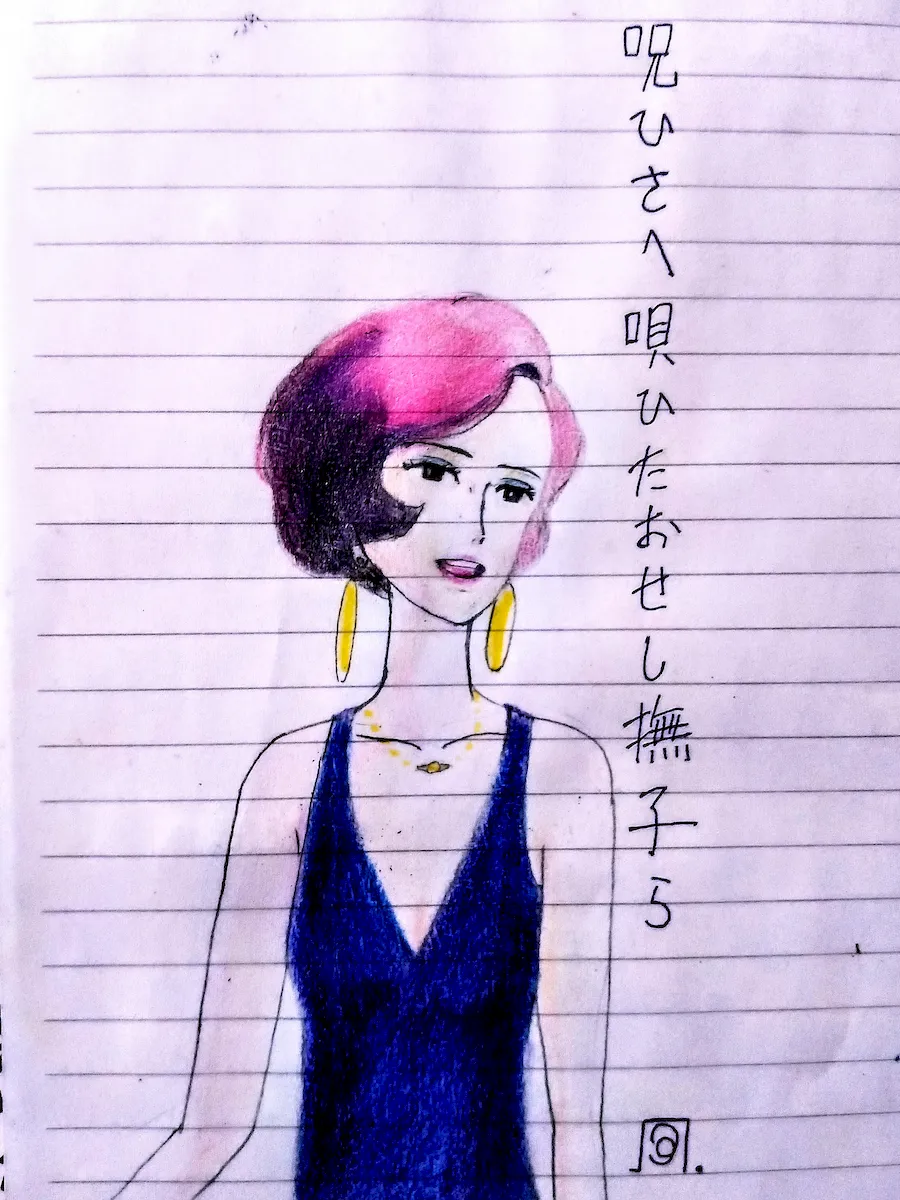 呪ひさへ唄ひたおせし撫子ら